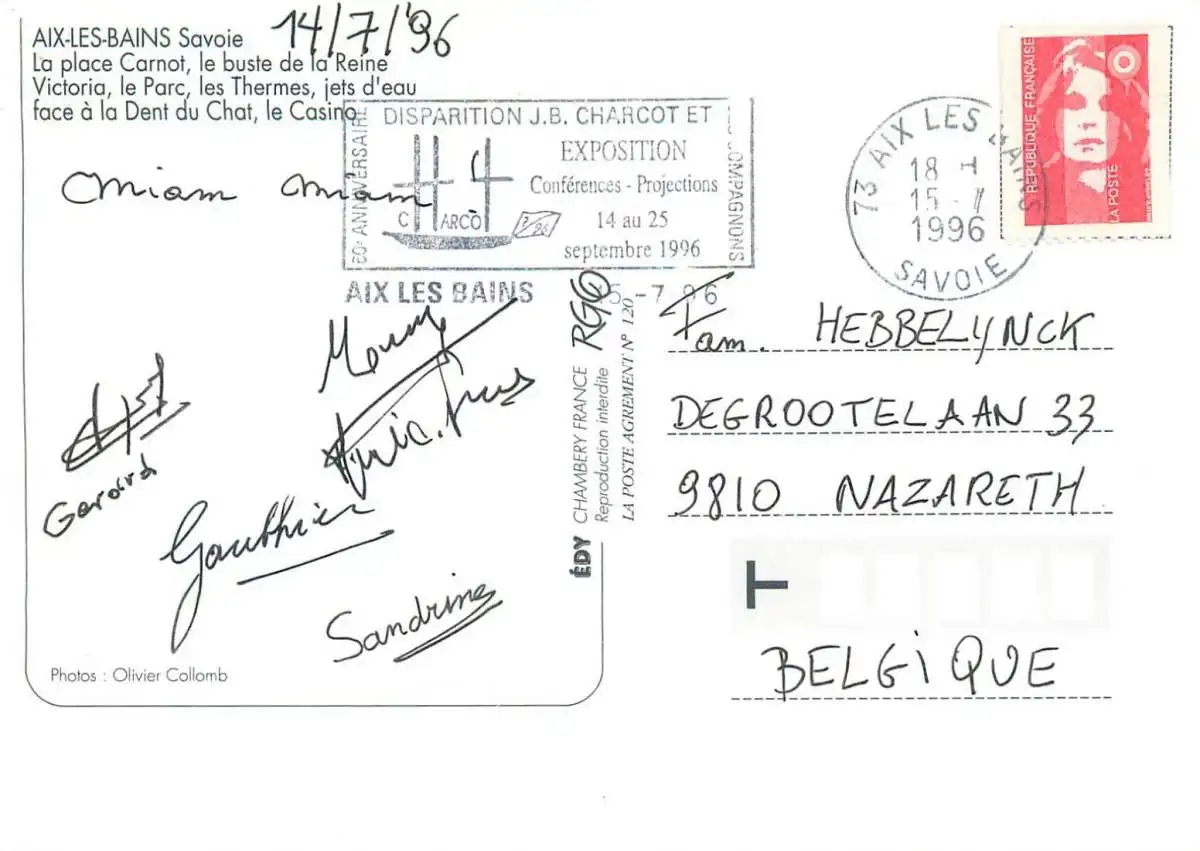 AIX-LES-BAINS Savoie
14/7/'96
La place Carnot, le buste de la Reine
Victoria, le Parc, les Thermes, jets d'eau
face à la Dent du Chat, le Casino
miam miam
60e ANNIVERSAIRE
DISPARITION J.B. CHARCOT ET
COMPAGNONS
EXPOSITION
Conférences - Projections
14 au 25
septembre 1996
AIX LES BAINS
15-7 96
73 AIX LES BAINS
18 H
15 - 7
1996
SAVOIE
RÉPUBLIQUE FRANÇAISE
LA POSTE
Gerard
Gauthier
Sandrine
ÉDY CHAMBERY FRANCE
Reproduction interdite
LA POSTE AGREMENT N° 120
Fam. HEBBELYNCK
DEGROOTELAAN 33
9810 NAZARETH
T
BELGiQUE
Photos : Olivier Collomb